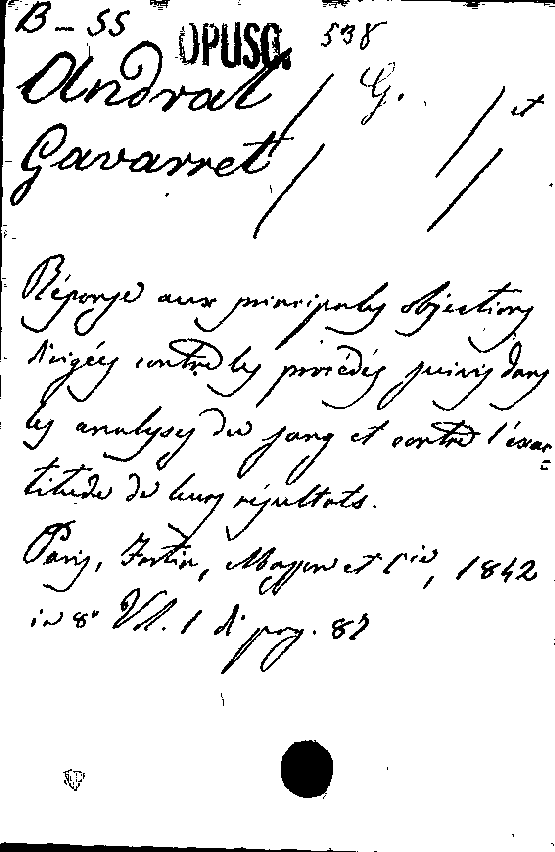 B - 55 OPUSC. 538
Andral / G. / et
Gavarret / /
Réponse aux principales objections
dirigées contre les procédés suivis dans
les analyses du sang et contre l'exac=
titude de leurs résultats.
Paris, Fortin, Masson et Cie, 1842
in 8° Vol. 1 di pag. 82